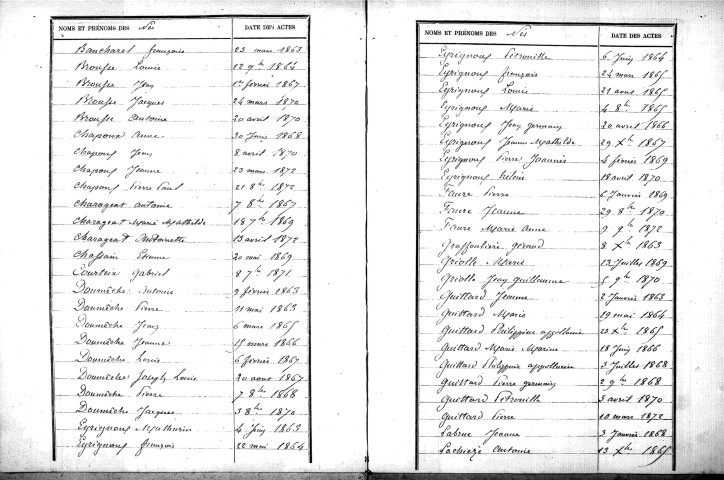 NOMS ET PRÉNOMS DES Nés DATE DES ACTES
Bancharel françois 23 mars 1863
Brousse Louise 12 9bre 1864
Brousse Jean 1er février 1867
Brousse Jacques 24 mars 1870
Brousse Antoine 20 avril 1870
Chapoux Anne 30 Juin 1868
Chapoux Jean 8 avril 1870
Chapoux Jeanne 23 mars 1872
Chapoux Pierre Paul 21 8bre 1872
Charageat Antoine 7 8bre 1867
Charageat Marie Mathilde 18 7bre 1869
Charageat Antoinette 13 avril 1872
Chassain Etienne 20 mai 1869
Courteix Gabriel 8 7bre 1871
Doumèche Antoine 9 février 1863
Doumèche Pierre 11 mai 1863
Doumèche Jean 6 mars 1865
Doumèche Jeanne 15 mars 1866
Doumèche Louis 6 février 1867
Doumèche Joseph Louis 20 aout 1867
Doumèche Pierre 7 8bre 1868
Doumèche Jacques 3 8bre 1870
Eyrignoux Mathurin 4 Juin 1863
Eyrignoux françois 22 mai 1864
NOMS ET PRÉNOMS DES Nés DATE DES ACTES
Eyrignoux Pétronille 6 Juin 1864
Eyrignoux françois 24 mars 1865
Eyrignoux Louis 21 aout 1865
Eyrignoux Marie 4 8bre 1865
Eyrignoux Jean germain 20 avril 1866
Eyrignoux Jeanne Mathilde 29 Xbre 1867
Eyrignoux Pierre Joannès 4 février 1869
Eyrignoux hélène 18 avril 1870
Faure Pierre 6 Janvier 1869
Faure Jeanne 29 8bre 1870
Faure Marie Anne 9 9bre 1872
Graffoulière géraud 8 Xbre 1863
Griolle Marie 13 Juillet 1869
Griolle Jean guillaume 5 9bre 1870
Guittard Jeanne 2 Janvier 1863
Guittard Marie 19 mai 1864
Guittard Philippine appollonie 23 Xbre 1865
Guittard Marie Marine 18 Juin 1866
Guittard Philippe appollinaire 3 Juillet 1868
Guittard Pierre germain 2 9bre 1868
Guittard Pétronille 3 avril 1870
Guittard Pierre 10 mars 1872
Labrue Jeanne 3 Janvier 1868
Lachièze Antoine 13 Xbre 1865